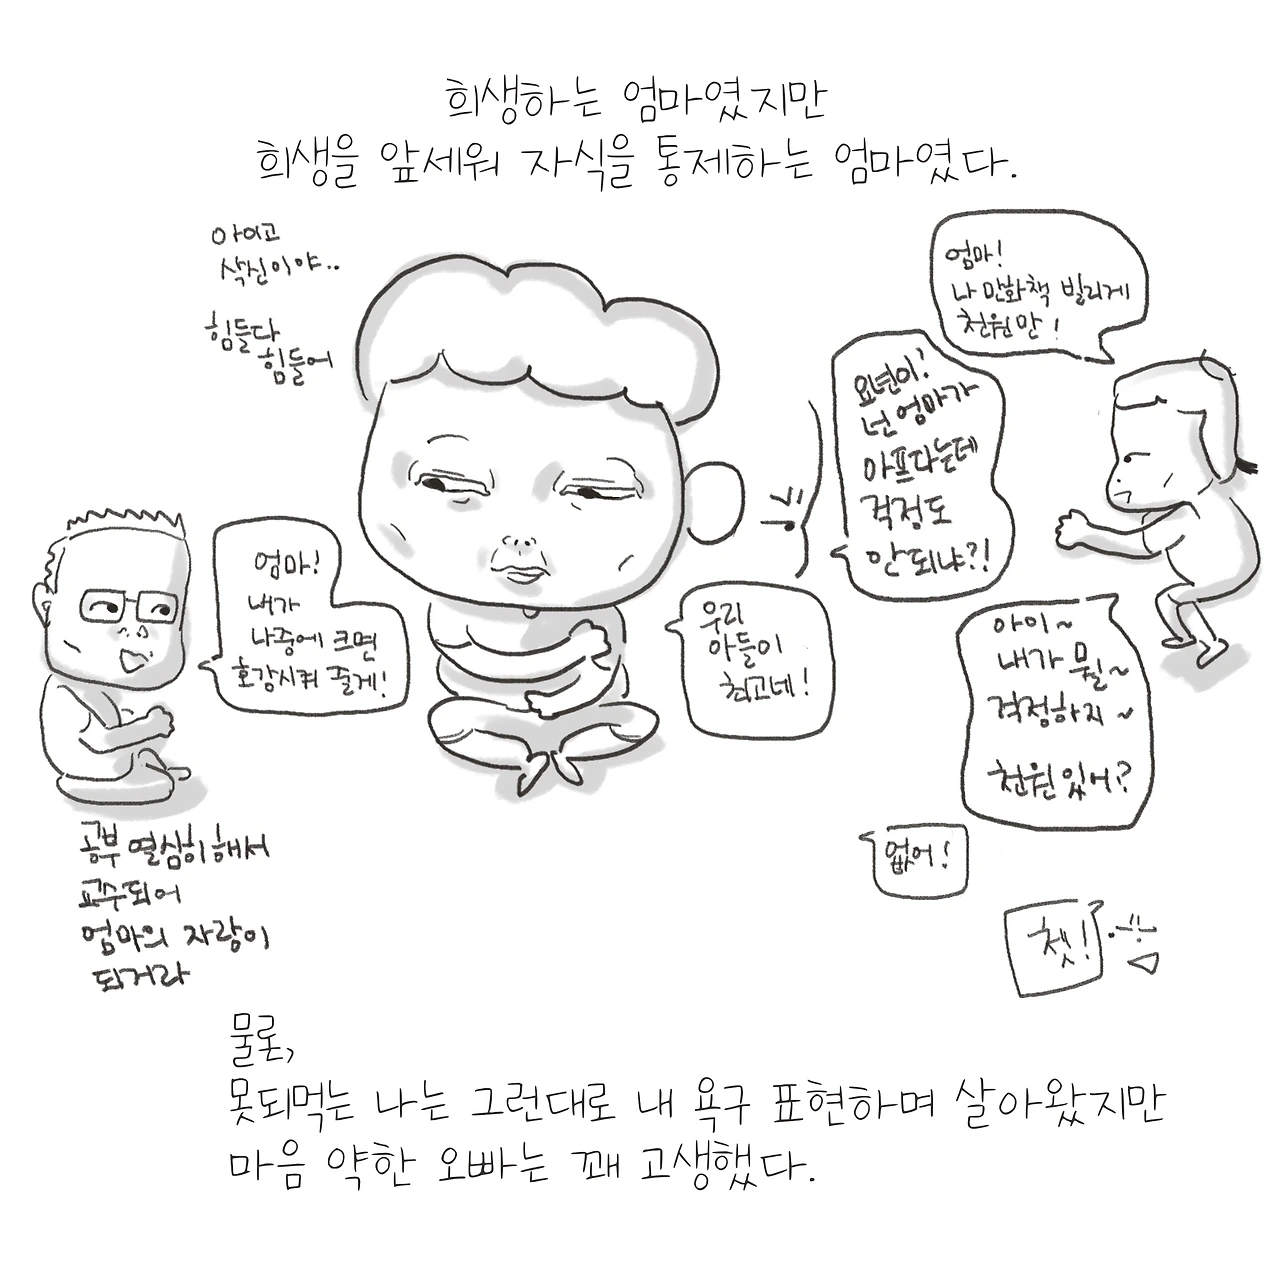 희생하는 엄마였지만
희생을 앞세워 자식을 통제하는 엄마였다.
아이고
삭신이야..
힘들다
힘들어
엄마!
나 만화책 빌리게
천원만!
요년이!
넌 엄마가
아프다는데
걱정도
안되냐?!
엄마!
내가
나중에 크면
호강시켜 줄게!
우리
아들이
최고네!
아이~
내가 뭘~
걱정하지~
천원있어?
없어!
쳇!
공부 열심히해서
교수되어
엄마의 자랑이
되거라
물론,
못되먹는 나는 그런대로 내 욕구 표현하며 살아왔지만
마음 약한 오빠는 꽤 고생했다.